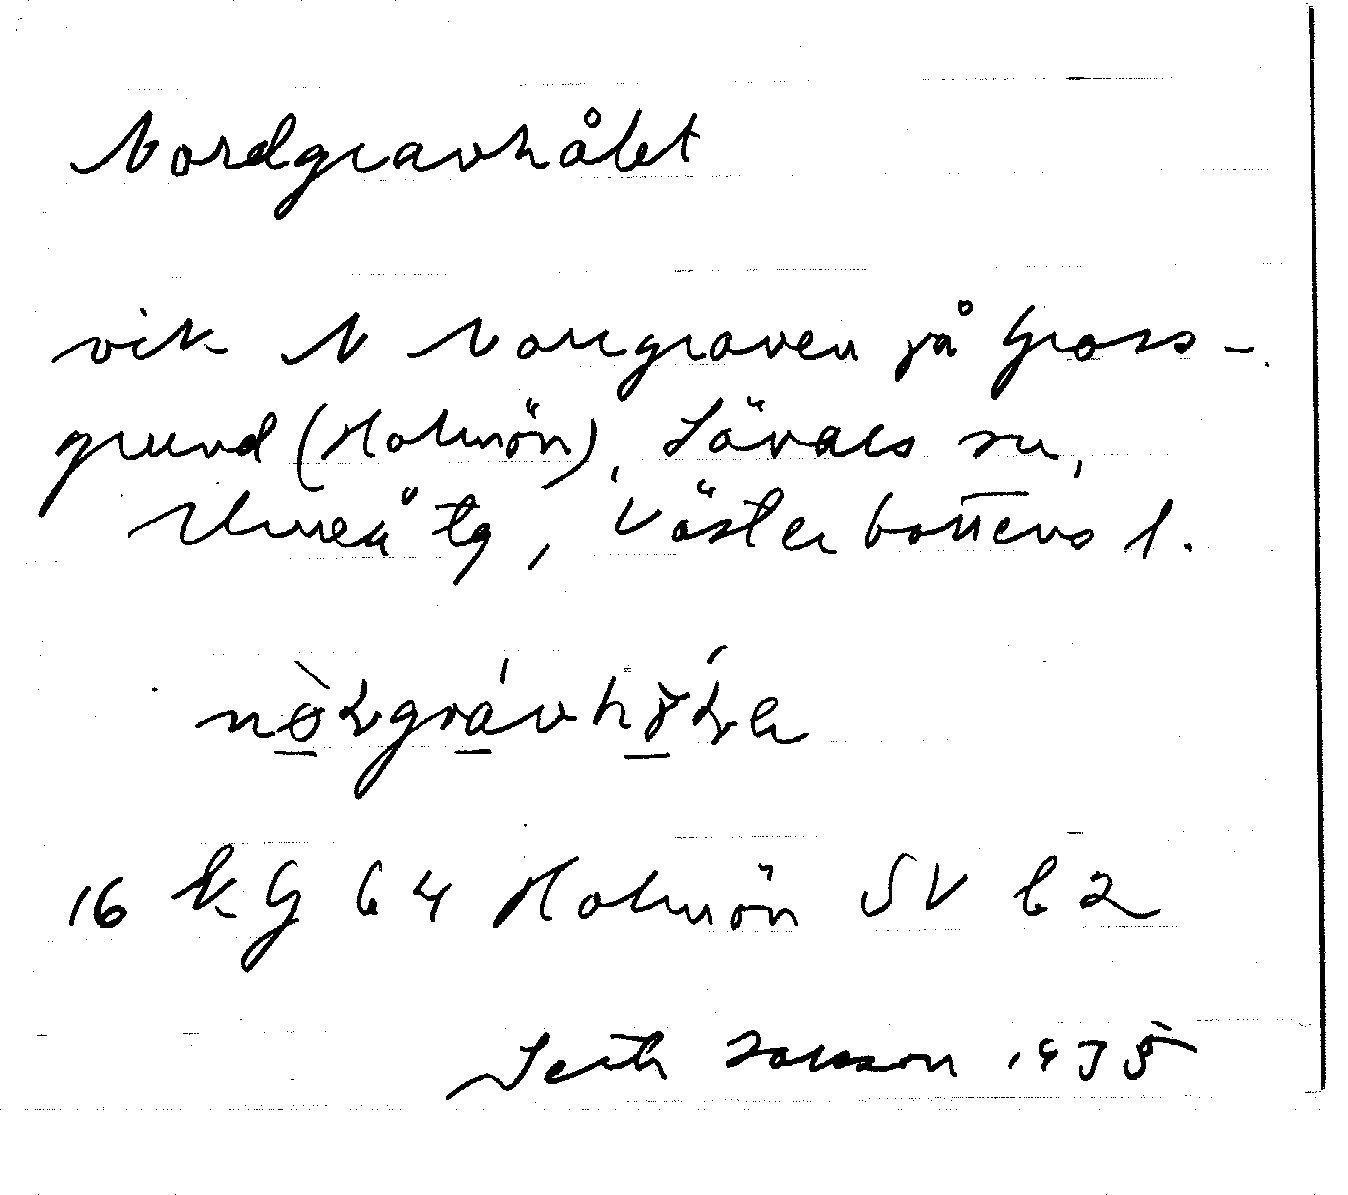 Nordgravhålet
vik N Norrgraven på Grass-
grund (Holmön), Sävars sn,
Umeå tg, Västerbottens l.
16 kG 64 Holmön SV b2
Seth Jansson 1975